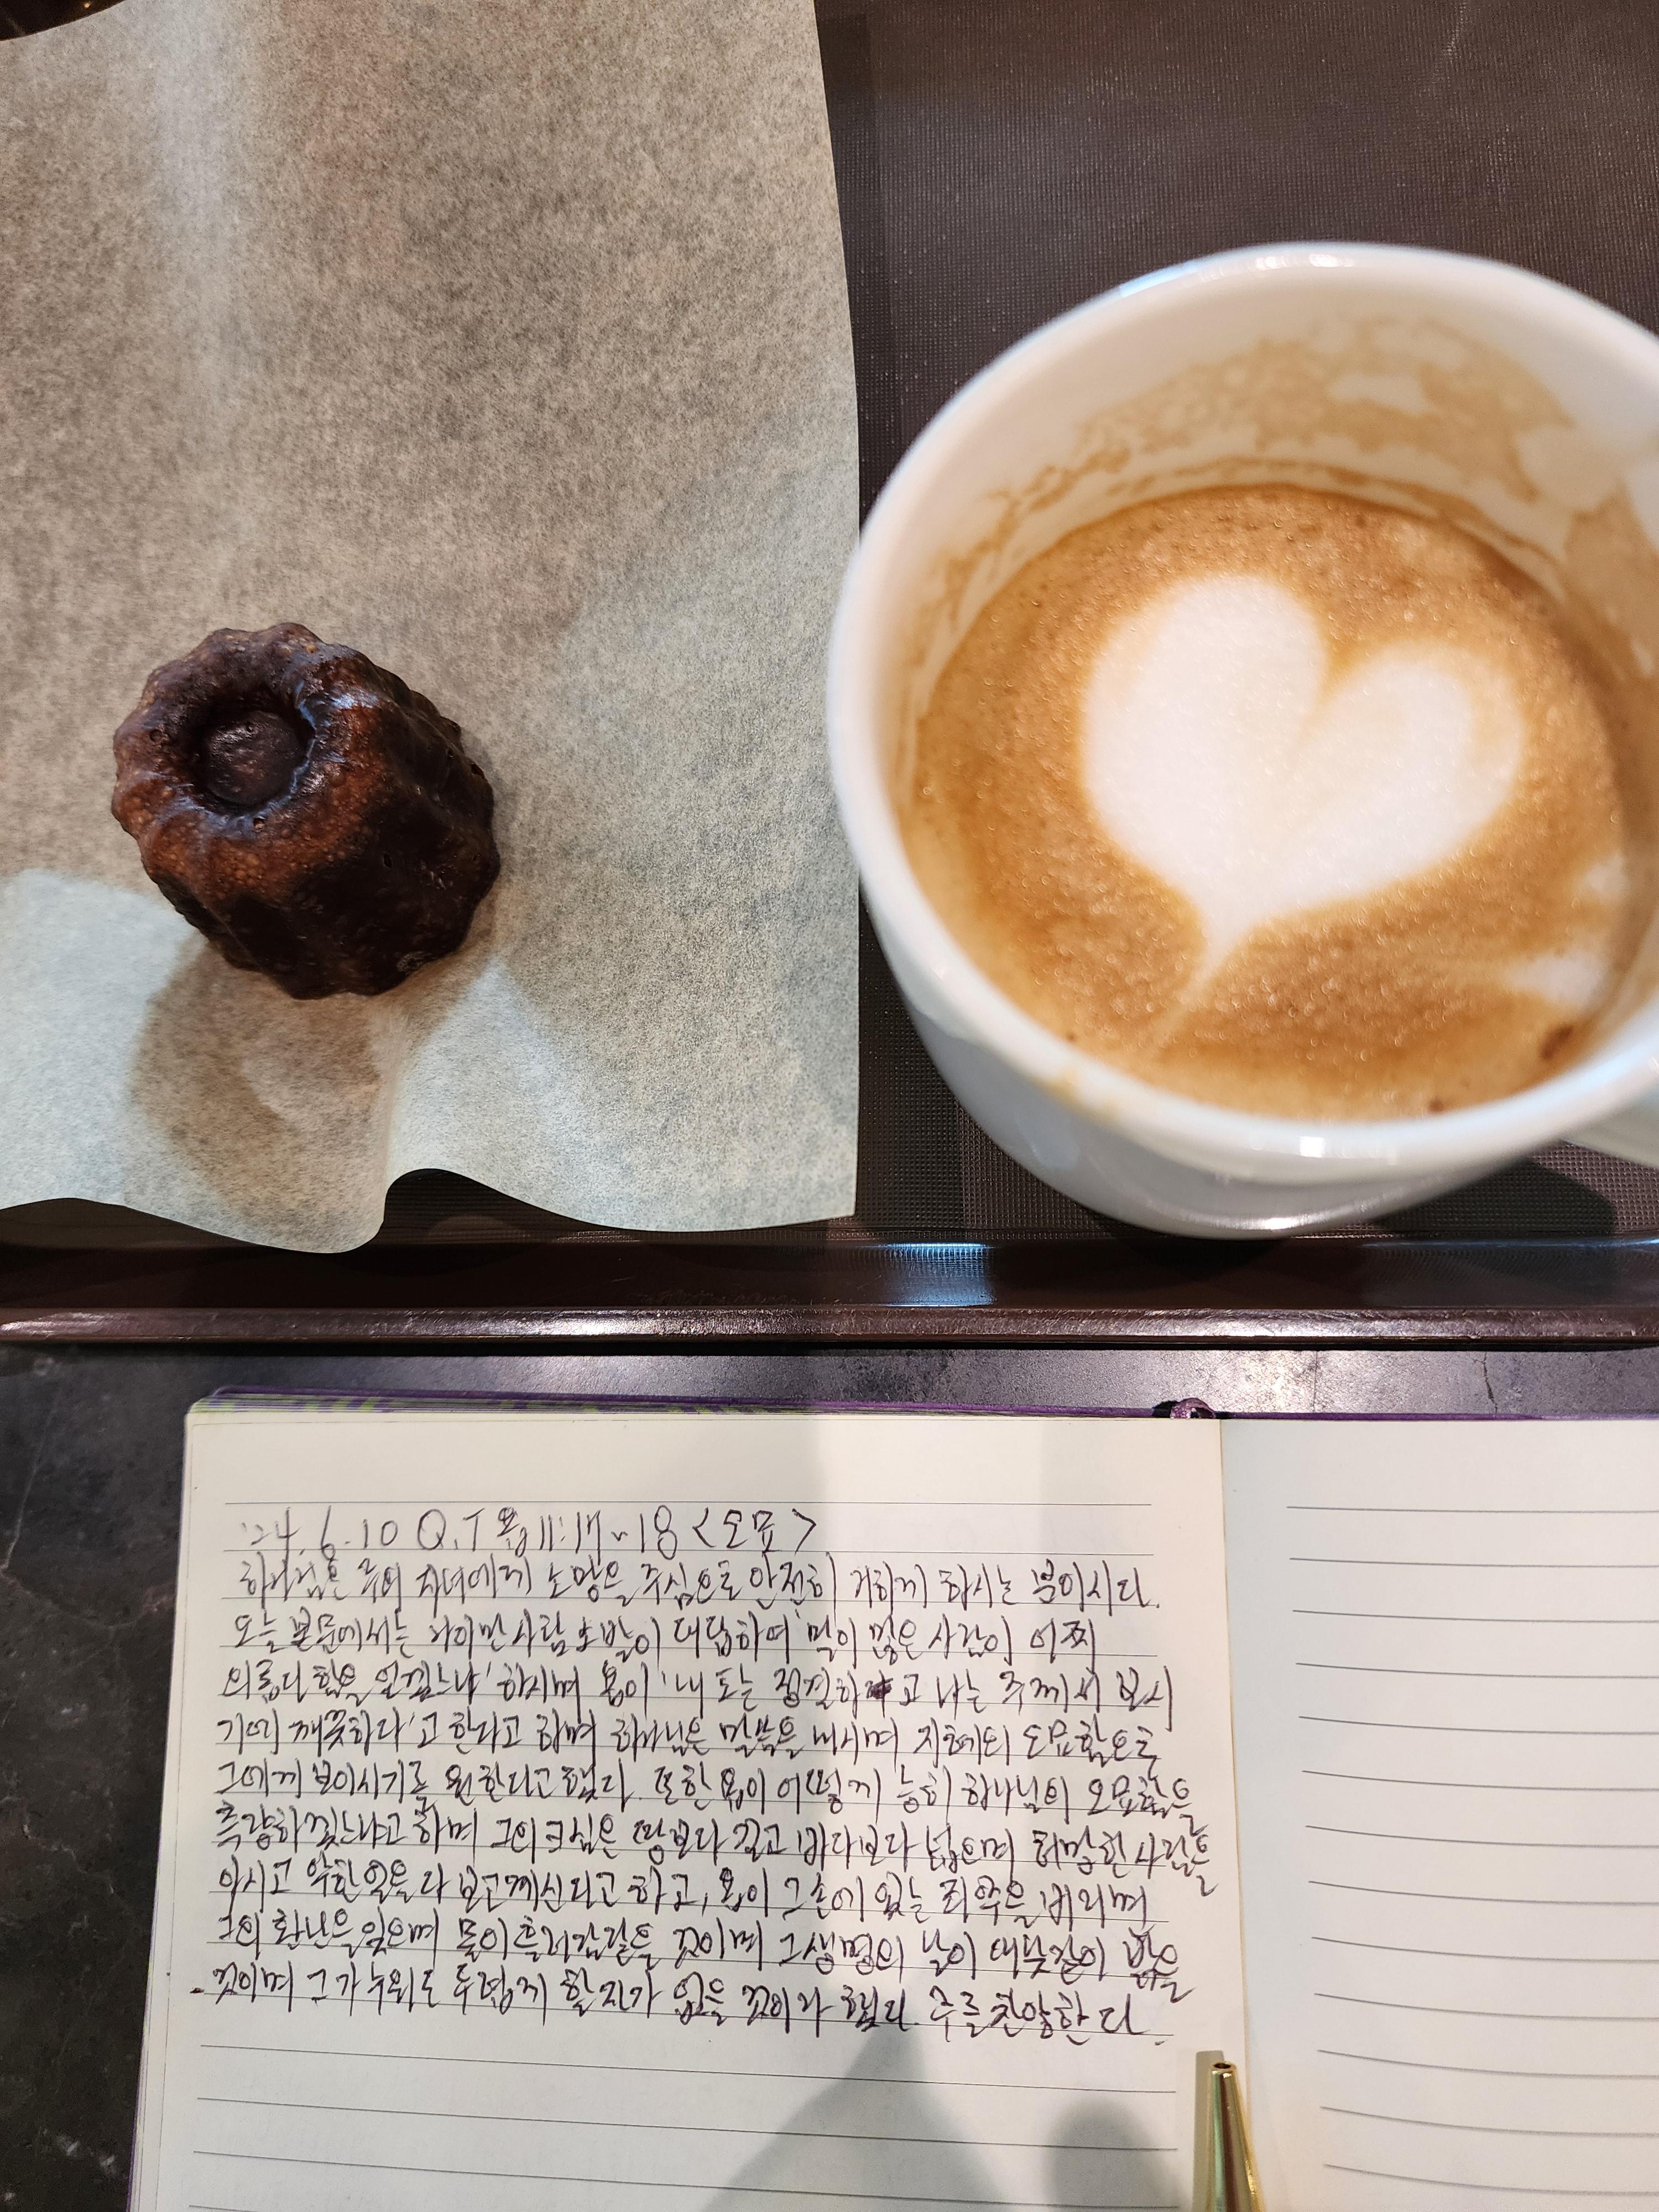 '24. 6. 10 Q.T 욥 11:17~18 <오묘>
하나님은 주의 자녀에게 소망을 주심으로 안전히 거하게 하시는 분이시다.
오늘 본문에서는 나아만 사람 소발이 대답하여 '말이 많은 사람이 어찌
의롭다 함을 얻겠느냐' 하시며 욥이 '내 도는 정결하고 나는 주께서 보시
기에 깨끗하다'고 한다고 하며 하나님은 말씀을 내시며 지혜의 오묘함으로
그에게 보이시기를 원한다고 했다. 또한 욥이 어떻게 능히 하나님의 오묘함을
측량하겠느냐고 하며 그의 크심은 땅보다 길고 바다보다 넓으며 허망한 사람을
아시고 악한 일을 다 보고 계신다고 하고, 욥이 그 손에 있는 죄악을 버리며
그의 환난을 잊으며 물이 흘러감 같을 것이며 그 생명의 날이 대낮같이 밝을
것이며 그가 누워도 두렵게 할 자가 없을 것이라 했다. 주를 찬양한다.